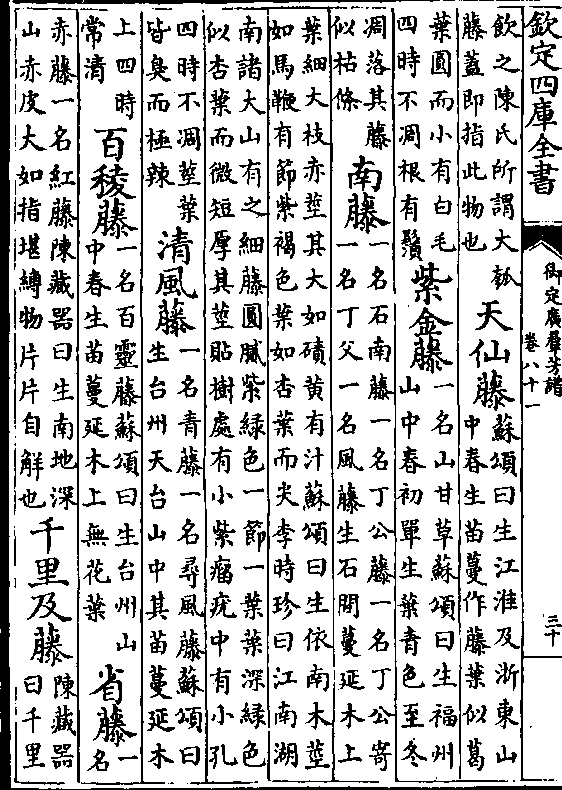 欽定四庫全書
御定廣羣芳譜
卷八十一
三十
飲之陳氏所謂大瓠
藤蓋即指此物也
天仙藤
蘇頌曰生江淮及浙東山
中春生苗蔓作藤葉似葛
葉圓而小有白毛
四時不凋根有鬚
紫金藤
一名山甘草蘇頌曰生福州
山中春初單生葉青色至冬
凋落其藤
似枯條
南藤
一名石南藤一名丁公藤一名丁公寄
一名丁父一名風藤生石間蔓延木上
葉細大枝赤莖其大如磧黄有汁蘇頌曰生依南木莖
如馬鞭有節紫褐色葉如杏葉而尖李時珍曰江南湖
南諸大山有之細藤圓膩紫綠色一節一葉葉深綠色
似杏葉而微短厚其莖貼樹處有小紫瘤疣中有小孔
四時不凋莖葉
皆臭而極辣
清風藤
一名青藤一名尋風藤蘇頌曰
生台州天台山中其苗蔓延木
上四時
常清
百稜藤
一名百靈藤蘇頌曰生台州山
中春生苗蔓延木上無花葉
省藤
一
名
赤藤一名紅藤陳藏器曰生南地深
山赤皮大如指堪縛物片片自解也
千里及藤
陳藏器
曰千里